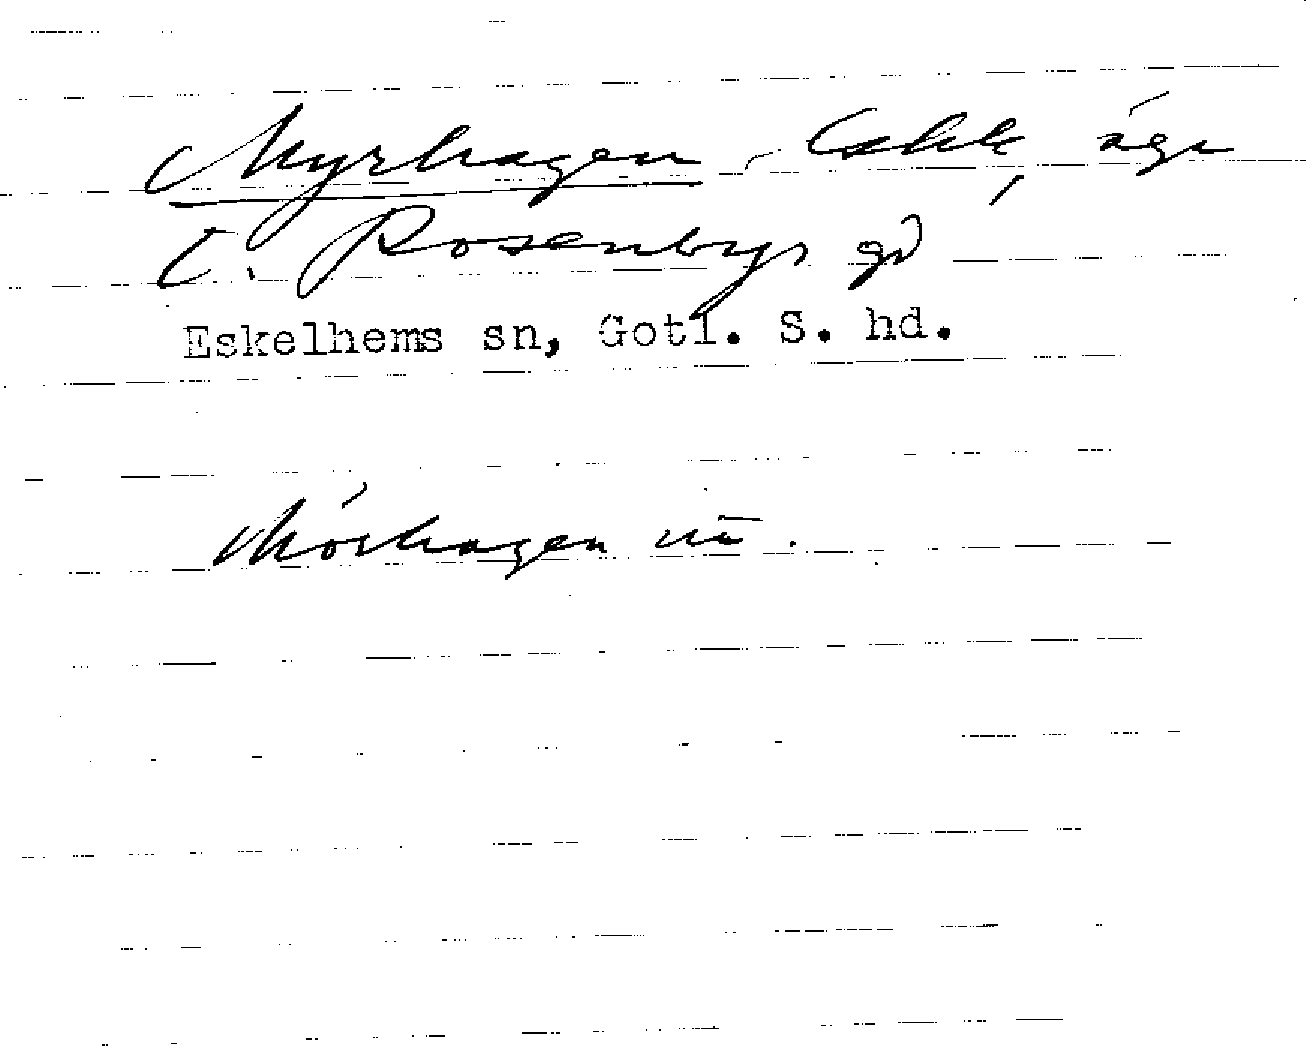 Myrhagen
t. Rosenbys gd
Eskelhems sn, Gotl. S. hd.
Mörhagen